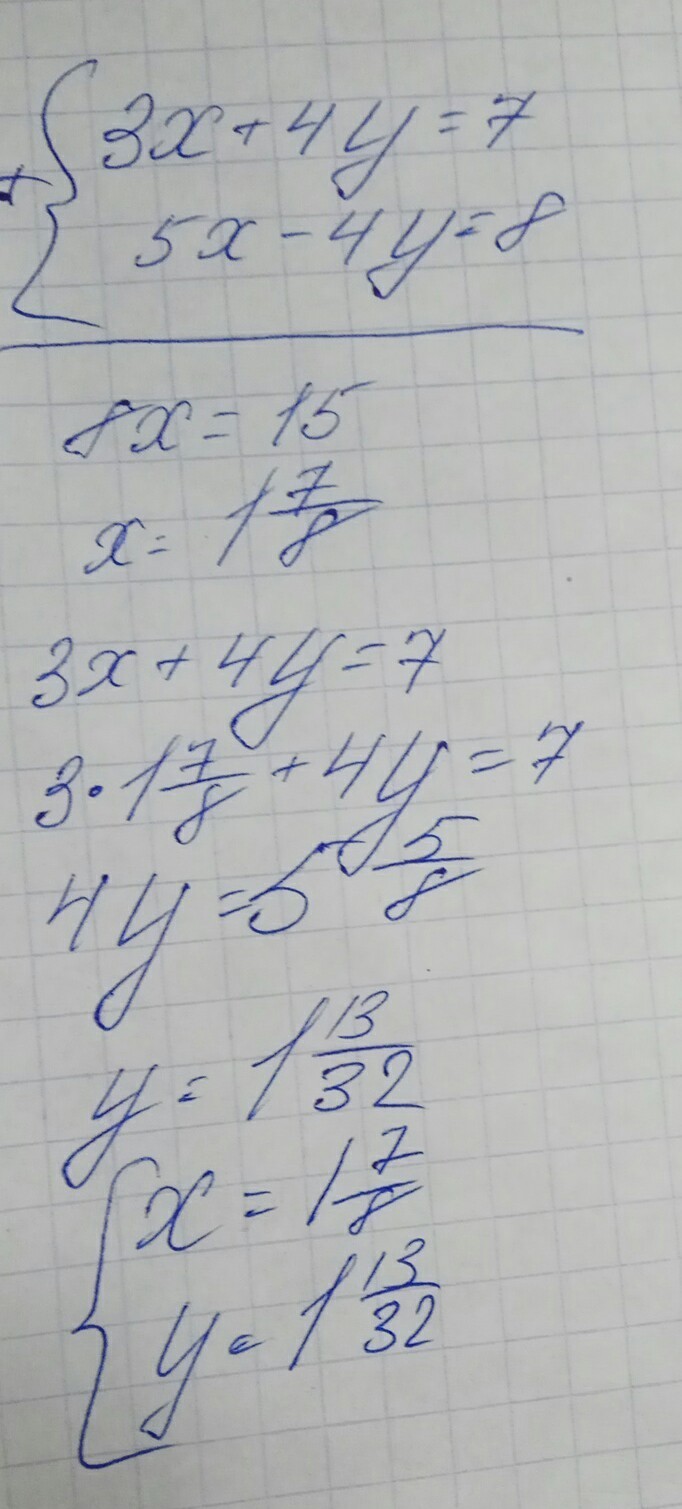 + { 3x + 4y = 7
5x - 4y = 8
8x = 15
x = 1 7/8
3x + 4y = 7
3 · 1 7/8 + 4y = 7
4y = 5 5/8
y = 1 13/32
{ x = 1 7/8
y = 1 13/32